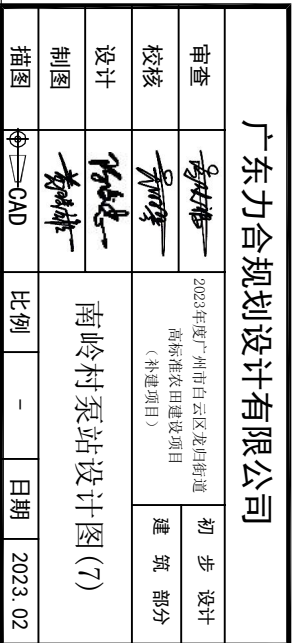 广东力合规划设计有限公司
审查
2023年度广州市白云区龙归街道
高标准农田建设项目
（补建项目）
初 步 设计
校核
建 筑 部分
设计
南岭村泵站设计图(7)
制图
描图
CAD
比例
-
日期
2023.02